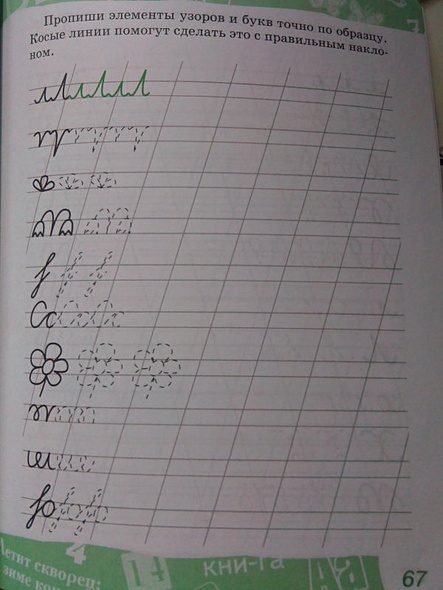 Пропиши элементы узоров и букв точно по образцу.
Косые линии помогут сделать это с правильным накло-
ном.
Летит скворец:
зиме
14
КНИ-ГА
67